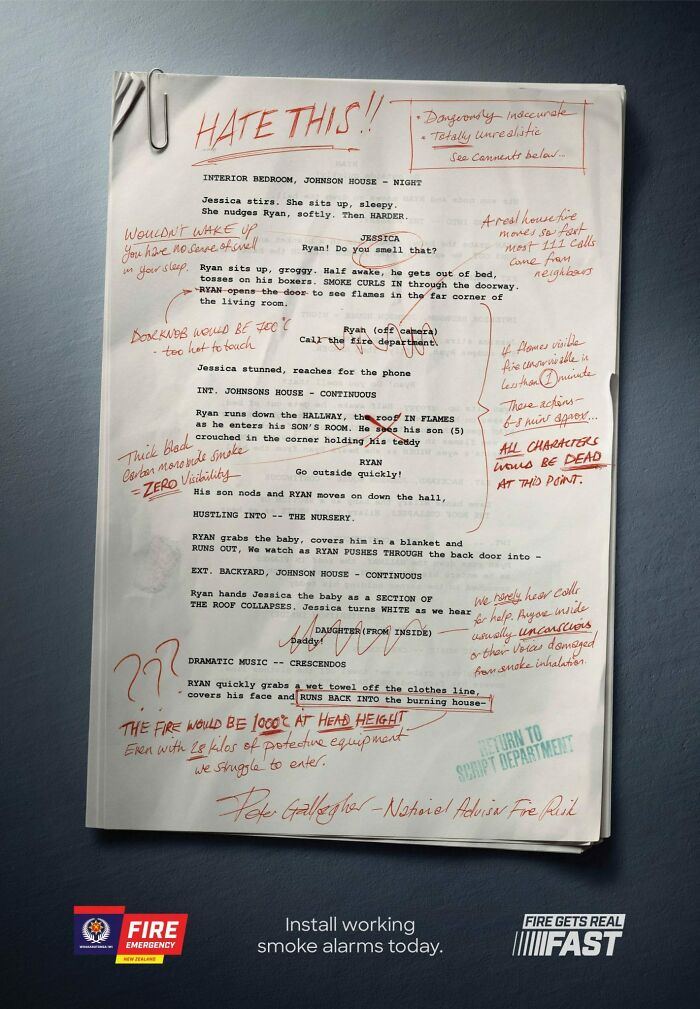 HATE THIS!!
• Dangerously inaccurate
• Totally unrealistic
See comments below...
INTERIOR BEDROOM, JOHNSON HOUSE – NIGHT
Jessica stirs. She sits up, sleepy.
She nudges Ryan, softly. Then HARDER.
WOULDN'T WAKE UP
You have no sense of smell
in your sleep.
JESSICA
Ryan! Do you smell that?
A real house fire
moves so fast
most 111 calls
come from
neighbours
Ryan sits up, groggy. Half awake, he gets out of bed,
tosses on his boxers. SMOKE CURLS IN through the doorway.
RYAN opens the door to see flames in the far corner of
the living room.
DOORKNOB WOULD BE 700°C
- too hot to touch
Ryan (off camera)
Call the fire department.
Jessica stunned, reaches for the phone
INT. JOHNSONS HOUSE – CONTINUOUS
If flames visible
fire unsurvivable in
less than 1 minute
These actions-
6-8 mins approx...
ALL CHARACTERS
WOULD BE DEAD
AT THIS POINT.
Ryan runs down the HALLWAY, the roof IN FLAMES
as he enters his SON'S ROOM. He sees his son (5)
crouched in the corner holding his teddy
Thick black
Carbon monoxide smoke
= ZERO Visibility
RYAN
Go outside quickly!
His son nods and RYAN moves on down the hall,
HUSTLING INTO -- THE NURSERY.
RYAN grabs the baby, covers him in a blanket and
RUNS OUT, We watch as RYAN PUSHES THROUGH the back door into –
EXT. BACKYARD, JOHNSON HOUSE – CONTINUOUS
Ryan hands Jessica the baby as a SECTION OF
THE ROOF COLLAPSES. Jessica turns WHITE as we hear
DAUGHTER(FROM INSIDE)
Daddy!
We rarely hear calls
for help. Anyone inside
usually unconscious
or their voices damaged
from smoke inhalation.
???
DRAMATIC MUSIC -- CRESCENDOS
RYAN quickly grabs a wet towel off the clothes line,
covers his face and RUNS BACK INTO the burning house–
THE FIRE WOULD BE 1000°C AT HEAD HEIGHT
Even with 28 kilos of protective equipment
we struggle to enter.
RETURN TO
SCRIPT DEPARTMENT
Peter Gallagher – National Advisor Fire Risk
WHAKARATONGA IWI
FIRE
EMERGENCY
NEW ZEALAND
Install working
smoke alarms today.
FIRE GETS REAL
FAST